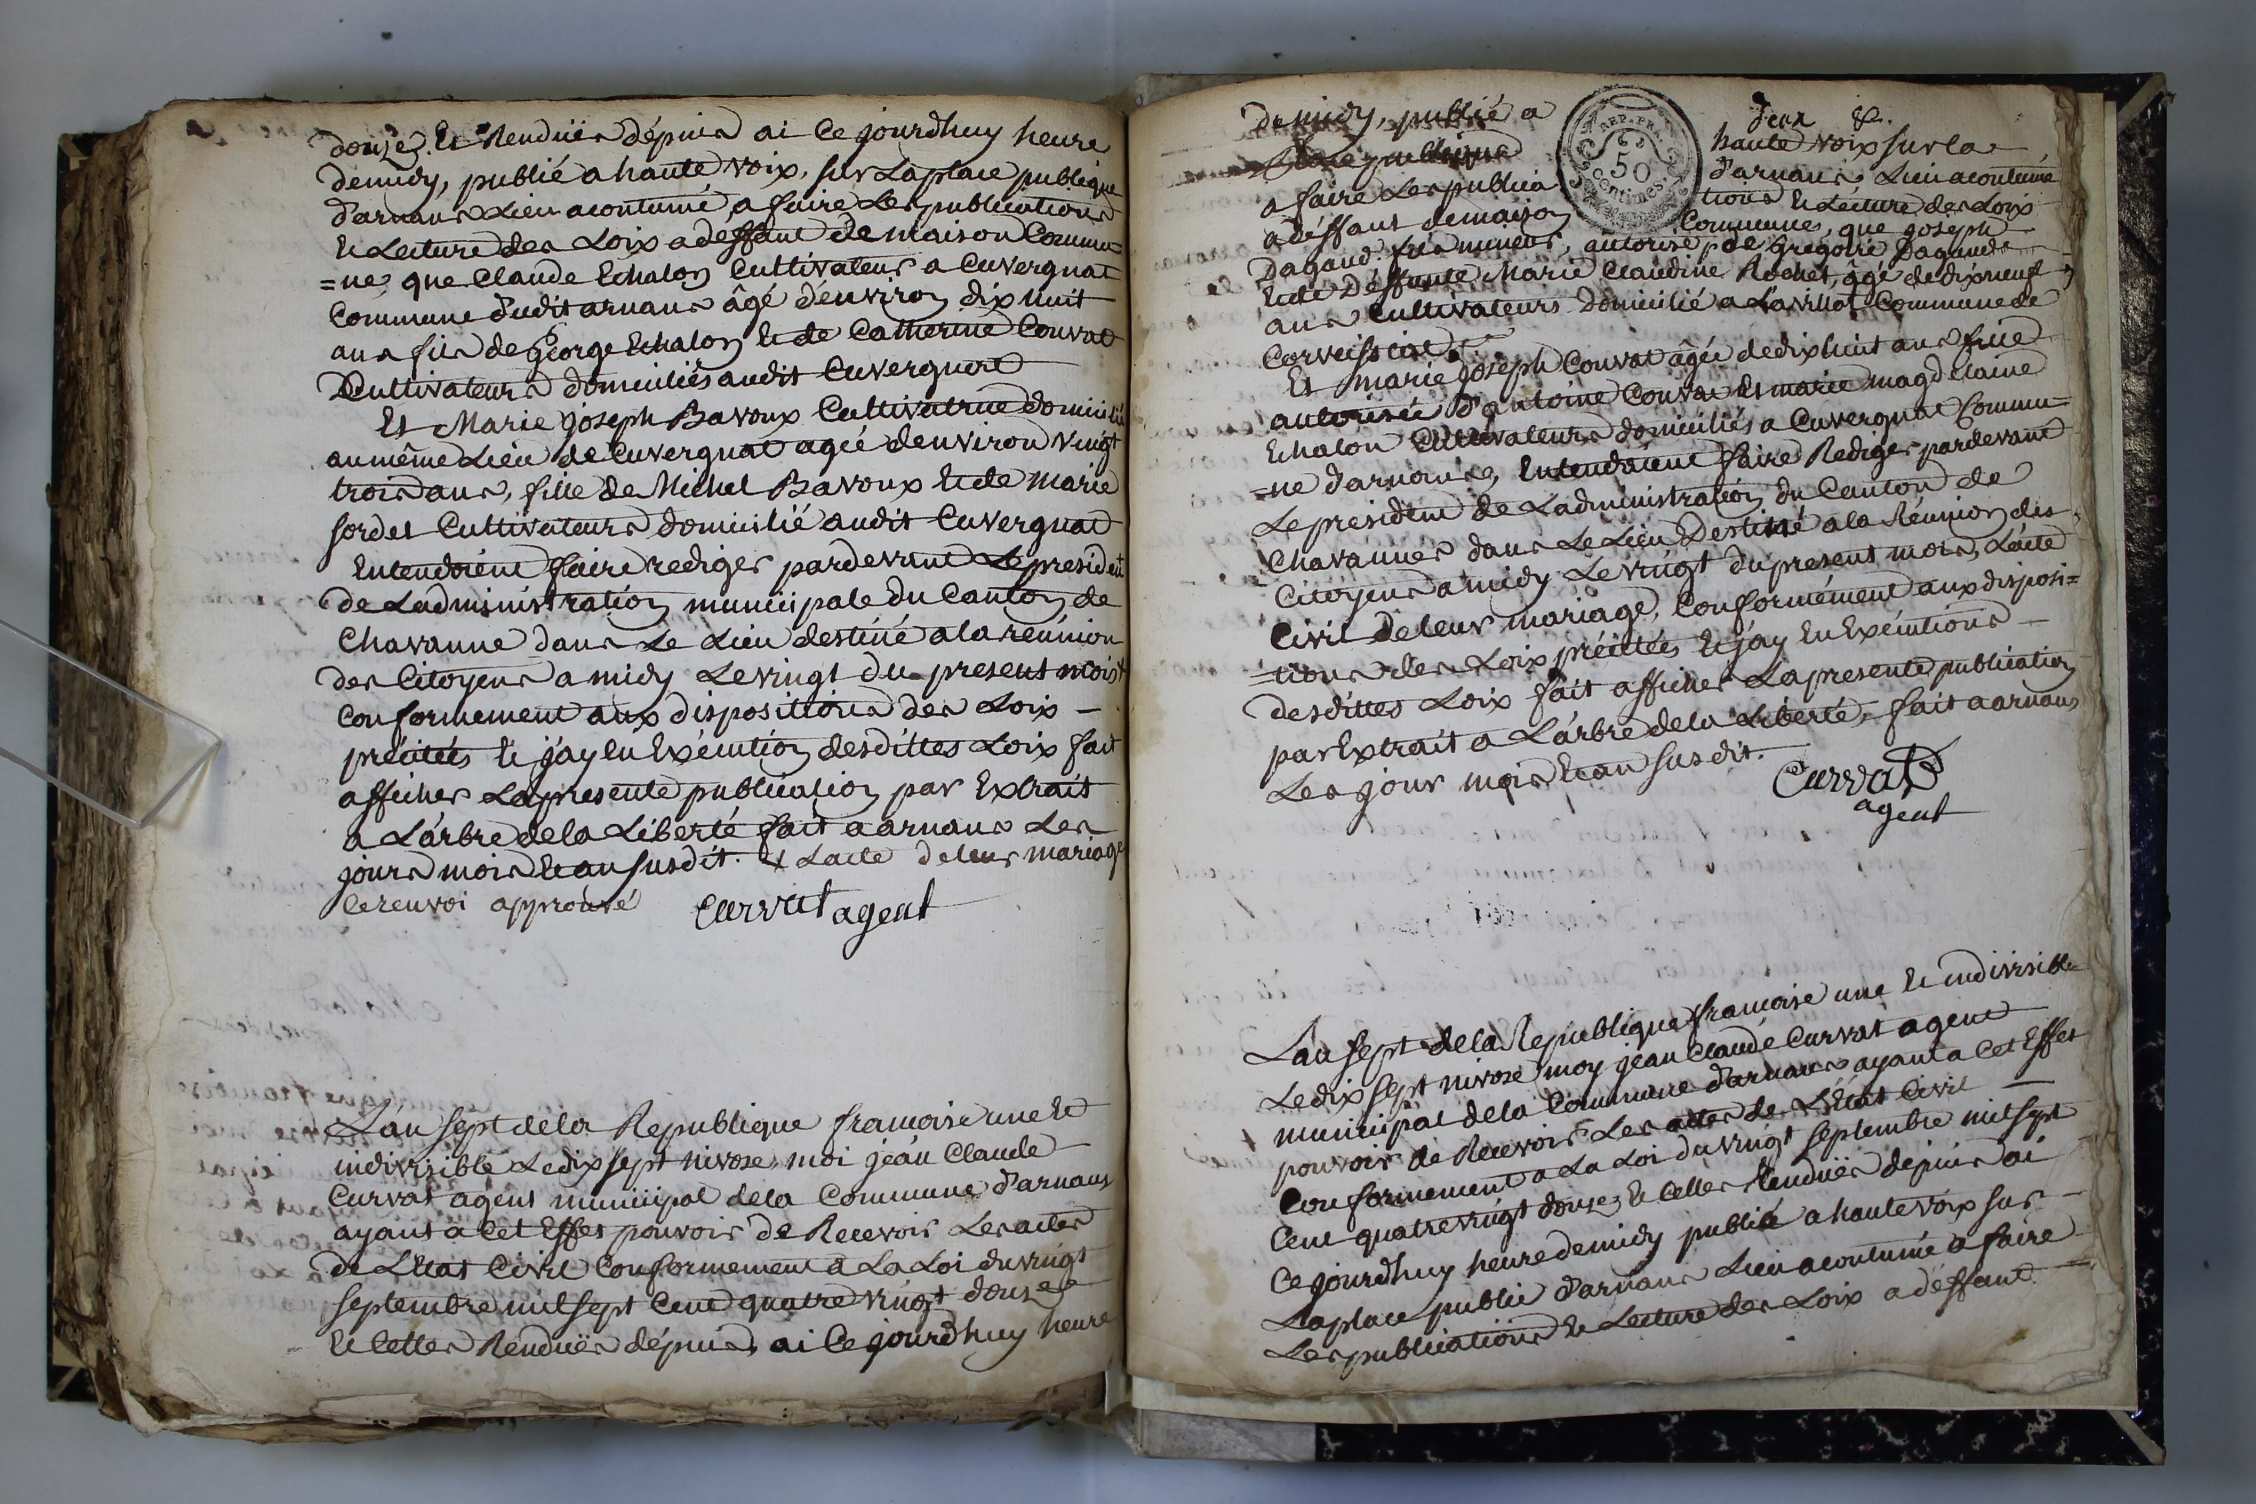 douze. Et Renduës dépuis ai Ce jourdhuy heure
demidy, publié a haute voix, sur Laplace publique
d'arnans Lieu acoutumé a faire Les publications
Et Lecture des Loix a deffaut de maison Commu=
=ne que Claude Echalon Cultivateur a Cuvergnat
Commune dudit arnans âgé d'environ dix huit
ans fils de George Echalon Et de Catherine Convat
Cultivateurs domiciliés audit Cuvergnat
Et Marie joseph Bavoux Cultivatrice domicilié
au même Lieu de Cuvergnat agée denviron vingt
trois ans, fille de Michel Bavoux Et de Marie
sordet Cultivateurs domicilié audit Cuvergnat
Entendoient faire rediger pardevant Le president
de Ladministration municipale Du Canton de
Chavanne dans Le Lieu destiné a la reunion
des Citoyens a midy Levingt du present mois +
Conformement aux dispositions des Loix —
précitées Et j'ay En Exécution desdittes Loix fait
afficher Lapresente publication par Extrait
a L'arbre dela Liberté fait a arnans Les
jours mois Et an susdit. + Lacte deleur mariage
Ce renvoi approuvé Curvat agent
L'an sept dela Republique francoise une Et
indivisible Ledix sept nivose moi jean Claude
Curvat agent municipal dela Commune d'arnans
ayant a Cet Effet pouvoir de Recevoir Les actes
de L'Etat Civil Conformement a La Loi du vingt
septembre mil sept Cent quatre vingt douze
Et Celles Renduës dépuis ai Ce jourdhuy heure
deux &.
demidy, publié a haute voix sur la
Place publique d'arnans Lieu acoutumé
a faire Les publica tions Et Lecture des Loix
a déffaut de maison Commune, que joseph
Dagaud fils mineur, autorisé de Gregoire Dagaud
Et de Déffunte Marie Claudine Rochet, âgé de dix neuf
ans Cultivateurs Domicilié a Lavillat Commune de
Corveissiat
Et marie joseph Convat âgée dedixhuit ans fille
autorisée d'antoine Convat Et marie magdelaine
Echalon Cultivateurs domiciliés a Cuvergnat Commu=
=ne d'arnans, Entendoient faire Rediger pardevant
Le president de Ladministration du Canton de
Chavannes dans Le Lieu Destiné a la Réunion des
Citoyens a midy Le vingt du present mois, Lacte
Civil deleur mariage, Conformément aux disposi=
=tions des Loix précitées Et j'ay En Exécutions —
desdittes Loix fait afficher Lapresente publication
par Extrait a L'arbre dela Liberté, fait a arnans
Les jour mois Et an susdit.
Curvat
agent
L'an sept dela Republique francoise une Et indivisible
Ledix sept nivose moy jean Claude Curvat agent
municipal dela Commune d'arnans ayant a Cet Effet
pouvoir de Recevoir Les actes de L'État Civil —
Conformement a La Loi du vingt septembre mil sept
Cent quatrevingt douze Et Celles Renduës dépuis ai
Ce jourdhuy heure demidy publié a haute voix sur —
Laplace public d'arnans Lieu acoutumé a faire
Les publications Et Lecture des Loix a déffaut —
REP. FRA.
50
centimes.